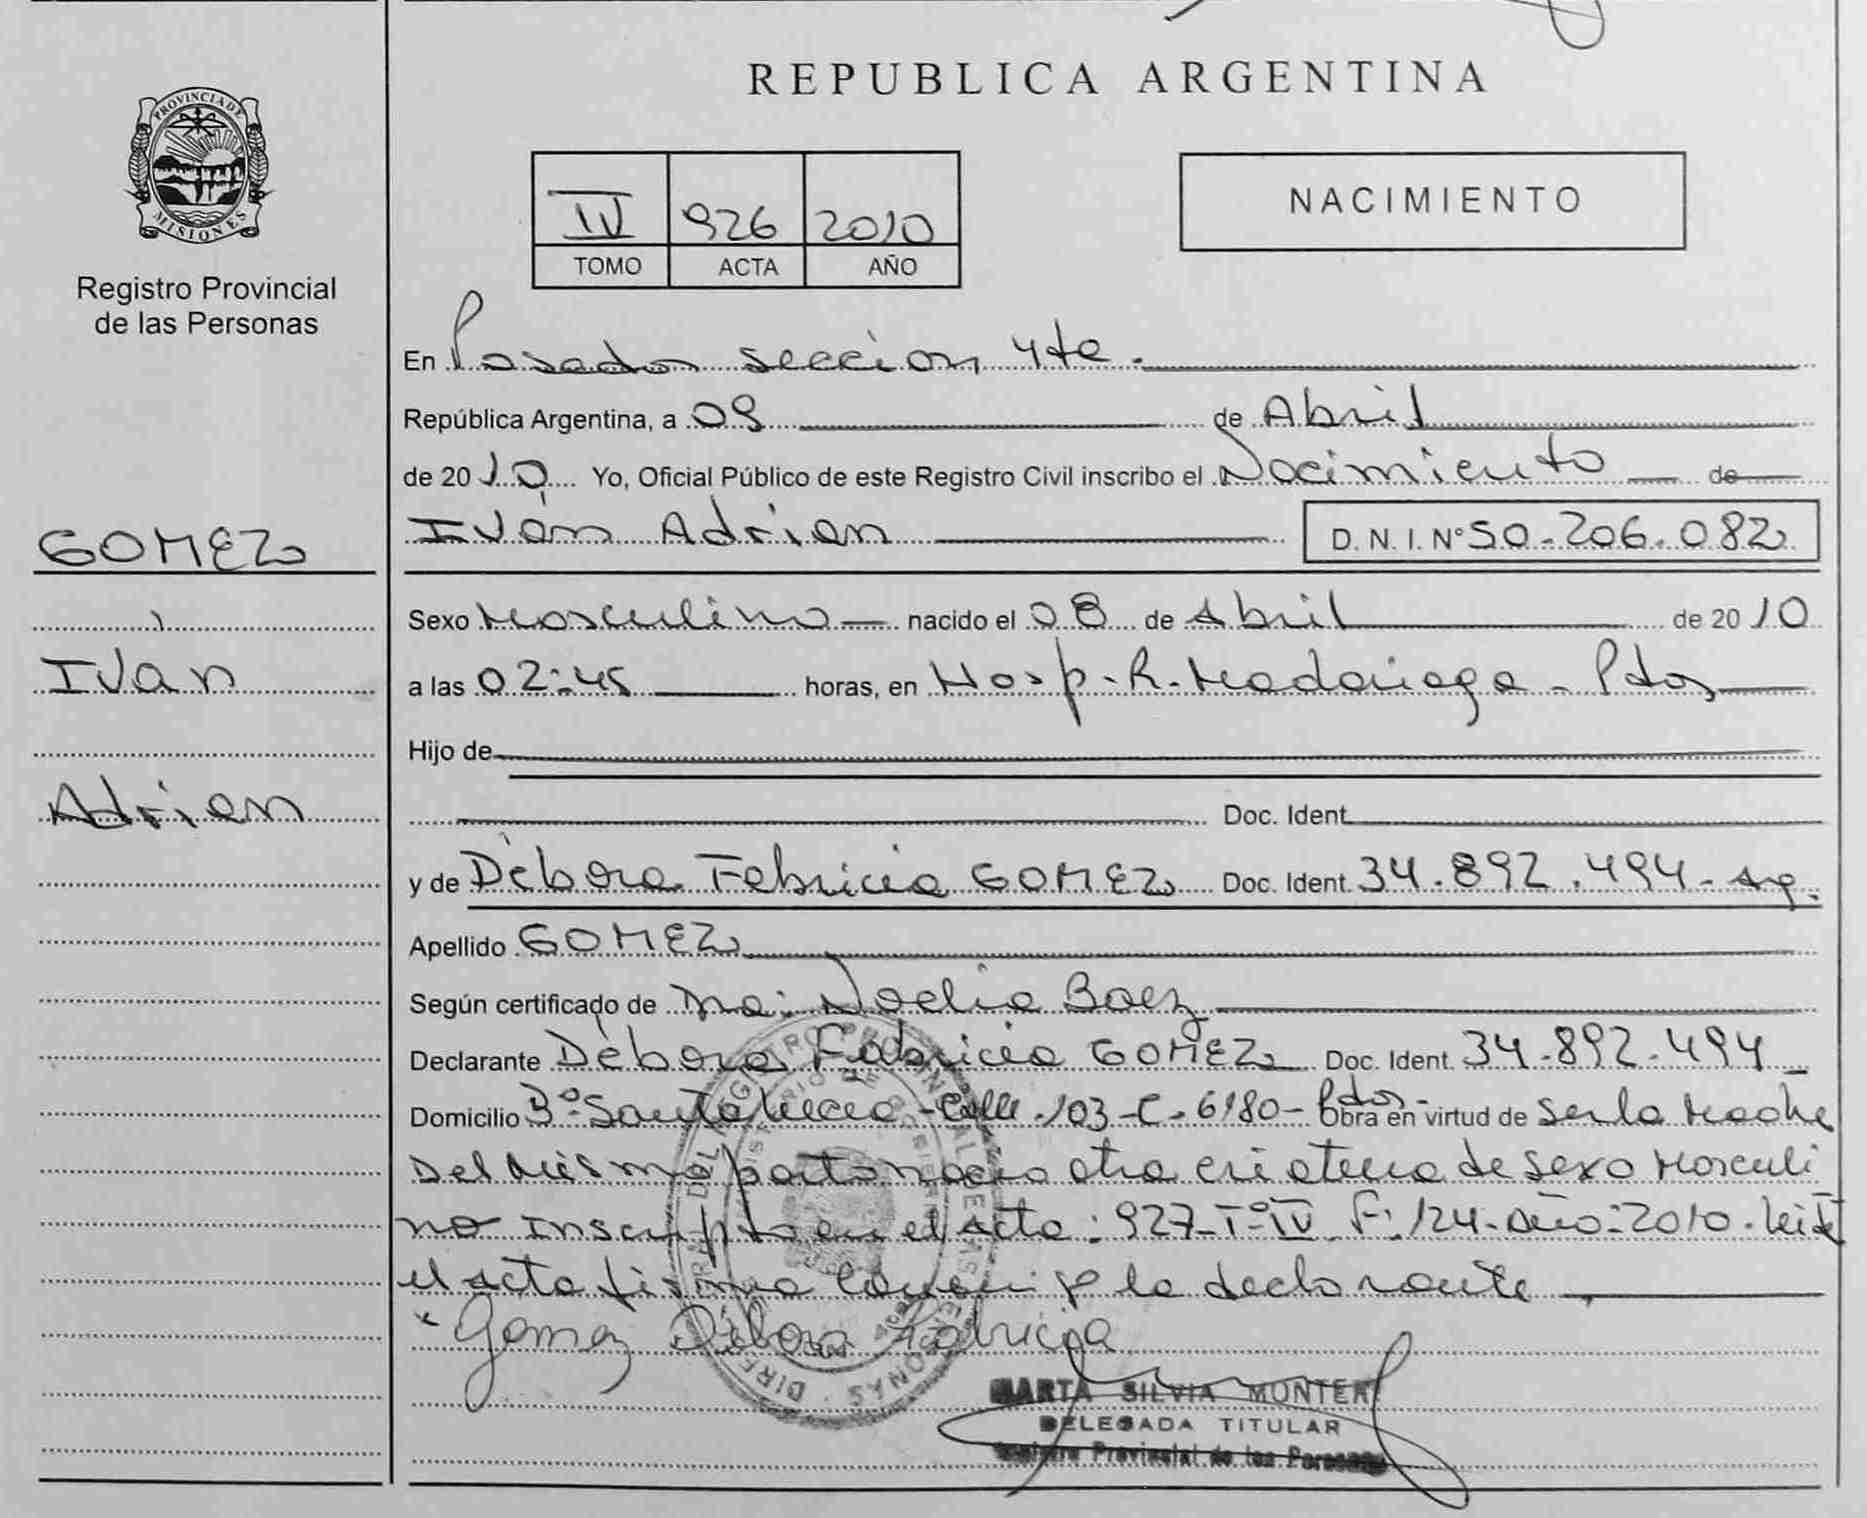 REPUBLICA ARGENTINA
PROVINCIA DE
MISIONES
Registro Provincial
de las Personas
IV 926 2010
TOMO ACTA AÑO
NACIMIENTO
En Posadas sección 4ta.
República Argentina, a 09 de Abril
de 2010 Yo, Oficial Público de este Registro Civil inscribo el Nacimiento de
Iván Adrian D.N.I. N° 50-206.082
GOMEZ
Iván
Adrian
Sexo Masculino nacido el 08 de Abril de 2010
a las 02:45 horas, en Hosp. R. Madariaga - Pdas
Hijo de
Doc. Ident.
y de Débora Fabricia GOMEZ Doc. Ident. 34.892.494 - Ag.
Apellido GOMEZ
Según certificado de Noelia Baez
Declarante Débora Fabricia GOMEZ Doc. Ident. 34.892.494
Domicilio B° Santa Lucia - Calle 103 - C. 6180 - Pdas - Obra en virtud de ser la Madre
Del Mismo parto nacio otra criatura de sexo Masculi
no Inscripto en el acta: 927 - T° IV F: 124 - año: 2010. Leida
el acta firma la declarante
x Gomez Débora Fabricia
MARTA SILVIA MONTER
DELEGADA TITULAR
Registro Provincial de las Personas